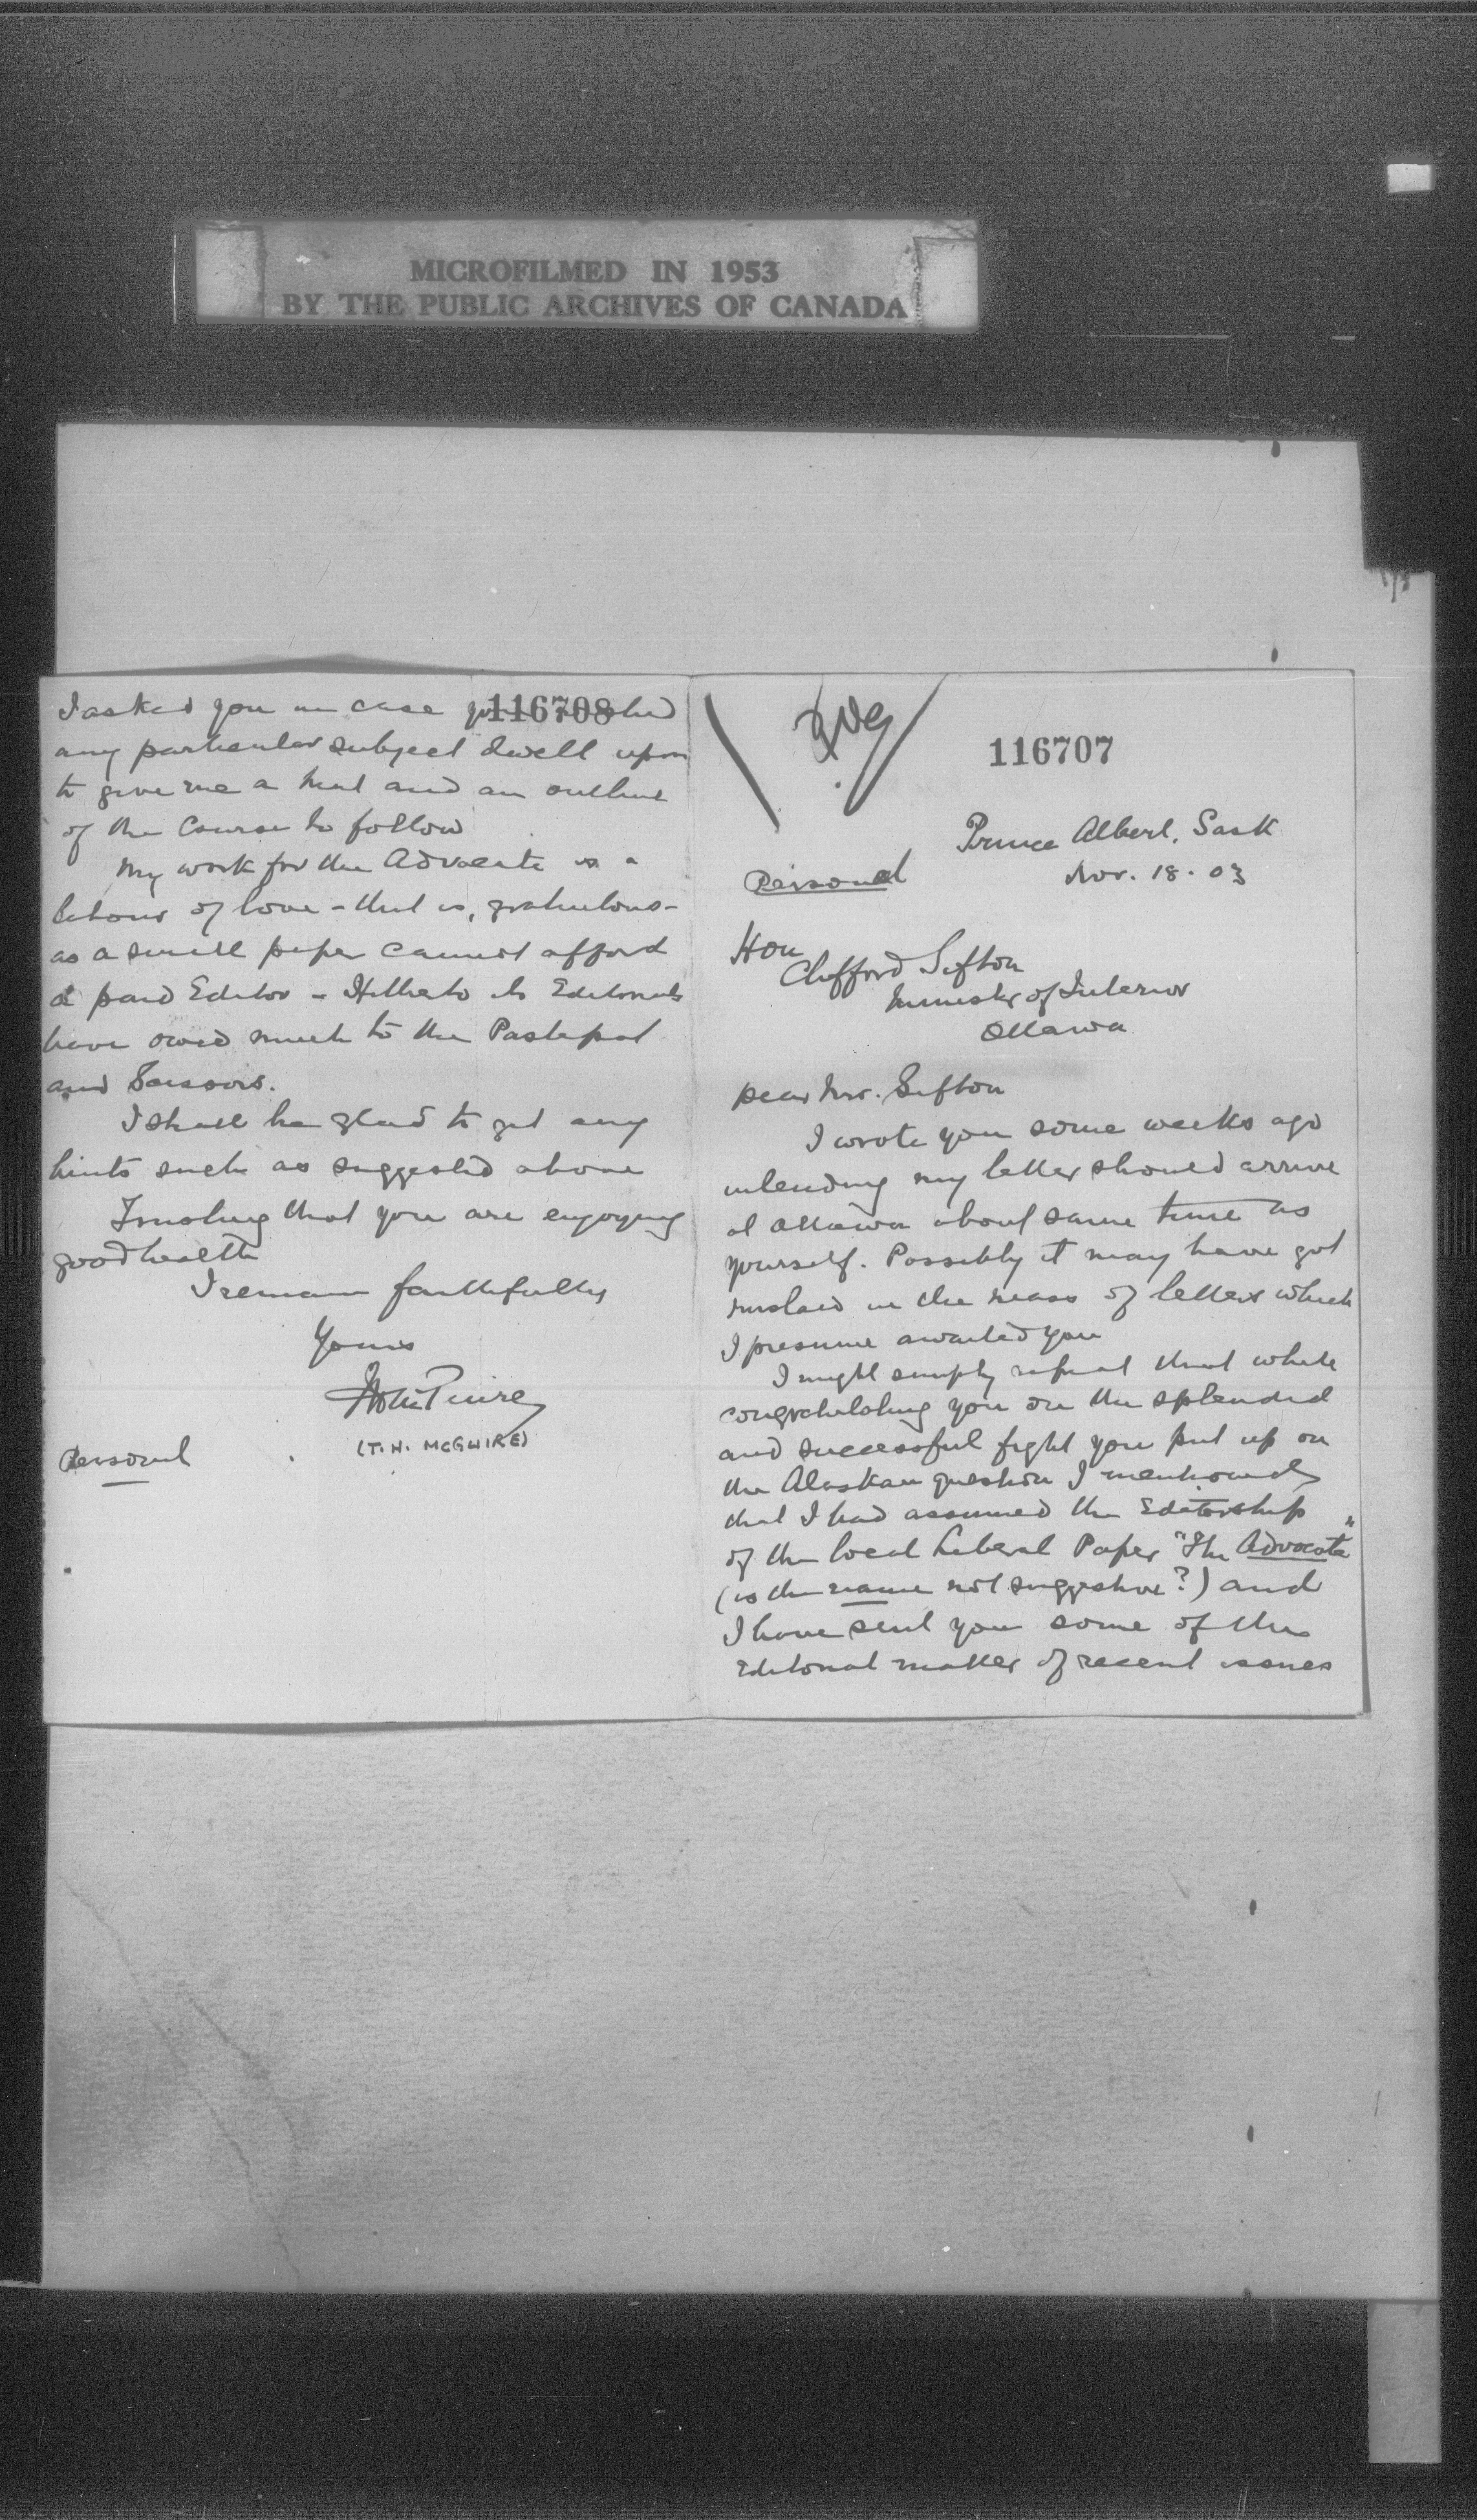 MICROFILMED IN 1953
BY THE PUBLIC ARCHIVES OF CANADA
116707
Prince Albert, Sask
Nov. 18. 03
Personal
Hon
Clifford Sifton
Minister of Interior
Ottawa
Dear Mr. Sifton
I wrote you some weeks ago
intending my letter should arrive
at Ottawa about same time as
yourself. Possibly it may have got
mislaid in the mass of letters which
I presume awaited you
I might simply repeat that while
congratulating you on the splendid
and successful fight you put up on
the Alaskan question I mentioned
that I had assumed the Editorship
of the local Liberal Paper "The Advocate"
(is the name not suggestive?) and
I have sent you some of the
Editorial matter of recent issues
116708
I asked you in case you wished
any particular subject dwelt upon
to give me a hint and an outline
of the Course to follow
My work for the Advocate is a
labour of love - that is, gratuitous -
as a small paper cannot afford
a paid Editor - Hitherto its Editorials
have owed much to the Pastepot
and Scissors.
I shall be glad to get any
hints such as suggested above
Trusting that you are enjoying
good health
I remain faithfully
Yours
T H McGuire
(T.H. McGUIRE)
Personal